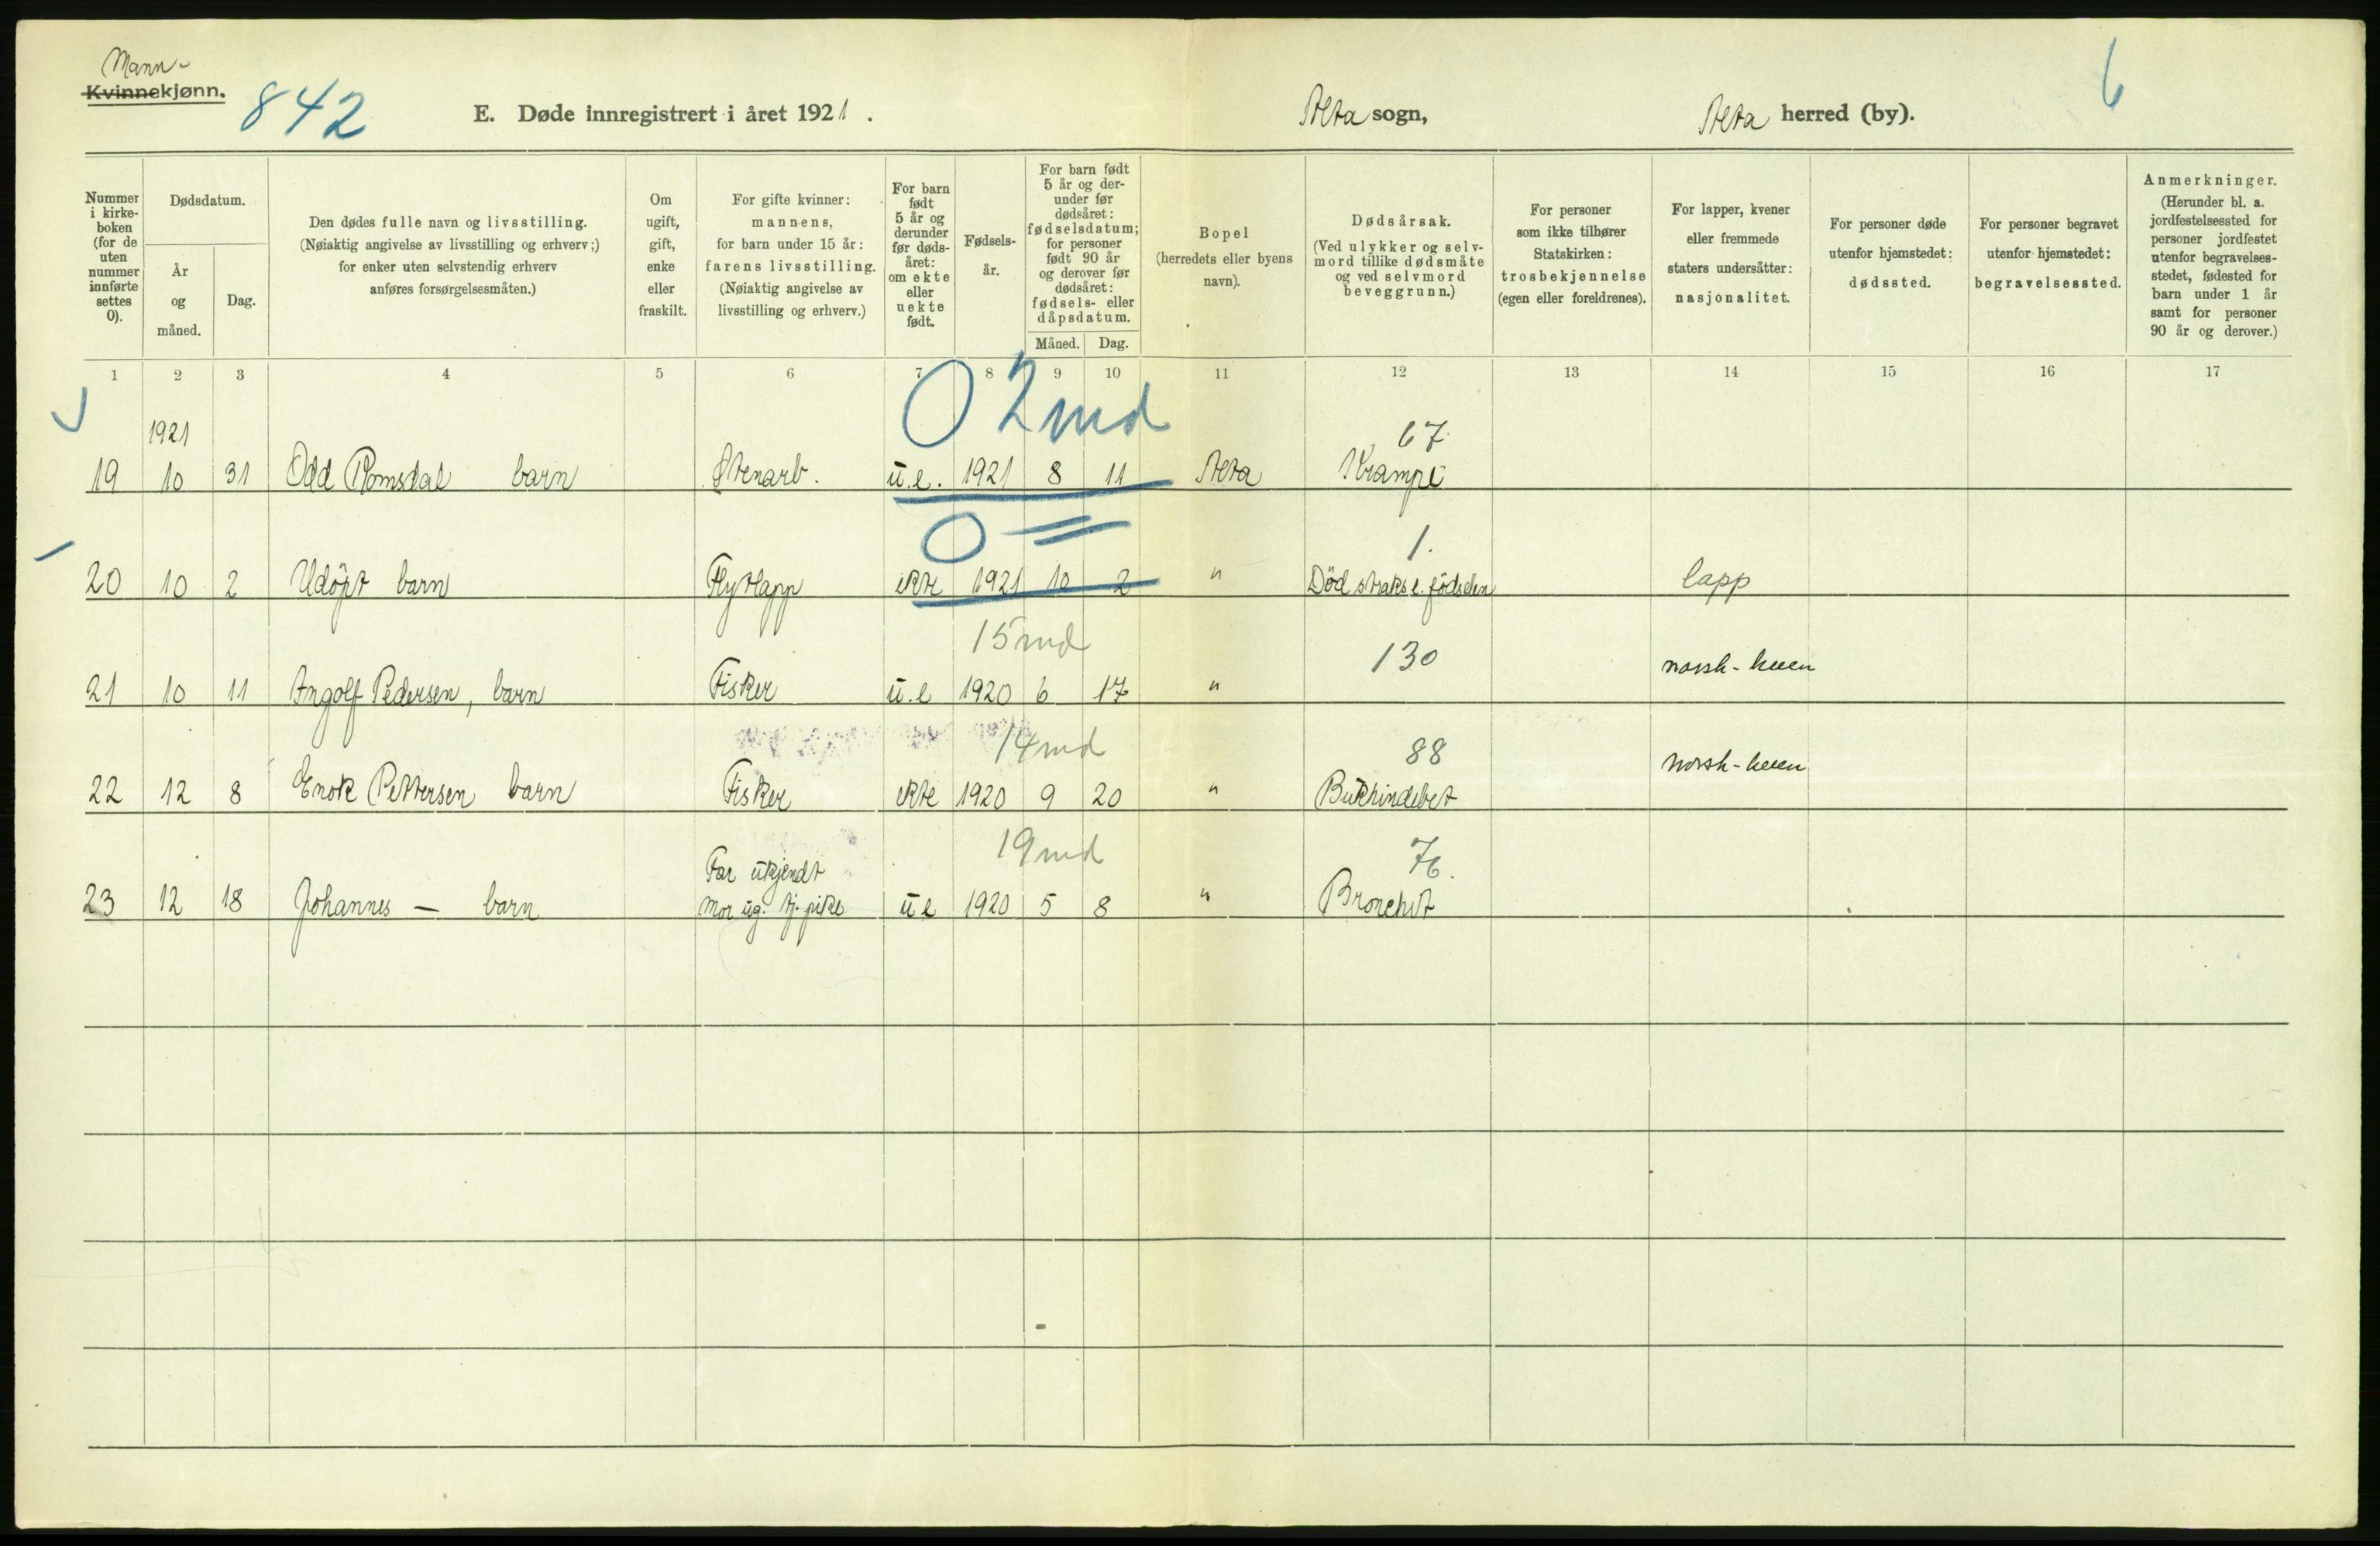 Mann-
Kvinnekjønn.
842
E. Døde innregistrert i året 1921.
Alta sogn,
Alta herred (by).
6
Nummer i kirke-boken (for de uten nummer innførte settes 0).
Dødsdatum.
År og måned.
Dag.
Den dødes fulle navn og livsstilling.
(Nøiaktig angivelse av livsstilling og erhverv;)
for enker uten selvstendig erhverv
anføres forsørgelsesmåten.)
Om ugift, gift, enke eller fraskilt.
For gifte kvinner: mannens, for barn under 15 år: farens livsstilling. (Nøiaktig angivelse av livsstilling og erhverv.)
For barn født 5 år og derunder før døds-året: om ekte eller uekte født.
Fødsels-år.
For barn født 5 år og der-under før dødsåret: fødselsdatum; for personer født 90 år og derover før dødsåret: fødsels- eller dåpsdatum.
Måned.
Dag.
Bopel (herredets eller byens navn).
Dødsårsak. (Ved ulykker og selv-mord tillike dødsmåte og ved selvmord beveggrunn.)
For personer som ikke tilhører Statskirken: trosbekjennelse (egen eller foreldrenes).
For lapper, kvener eller fremmede staters undersåtter: nasjonalitet.
For personer døde utenfor hjemstedet: dødssted.
For personer begravet utenfor hjemstedet: begravelsessted.
Anmerkninger. (Herunder bl. a. jordfestelsessted for personer jordfestet utenfor begravelses-stedet, fødested for barn under 1 år samt for personer 90 år og derover.)
1 2 3 4 5 6 7 8 9 10 11 12 13 14 15 16 17
1921
0 2 md
67
19 10 31 Odd Romsdal barn Stenarb. u.e. 1921 8 11 Alta Krampe
0 =
1.
20 10 2 Udöpt barn Flytlapp ekte 1921 10 2 " Död straks e. födselen lapp
15 md
130
21 10 11 Ingolf Pedersen, barn Fisker u.e 1920 6 17 " norsk-kven
14 md
88
22 12 8 Enok Pettersen barn Fisker ekte 1920 9 20 " Bukhindebet norsk-kven
19 md
76.
Far ukjendt
23 12 18 Johannes — barn Mor ug. tj. pike u e 1920 5 8 " Bronchit